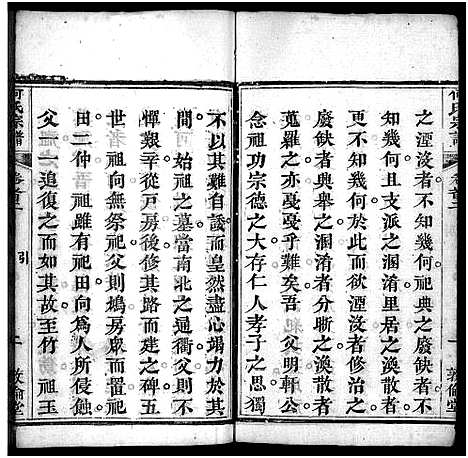 何氏宗譜
卷首二
一
敦倫堂
之湮沒者不知幾何祀典之廢缺者不
知幾何且支派之溷淆里居之渙散者
不知幾何於此而欲湮沒者修治之
廢缺者興舉之溷淆者分晰之渙散者
難矣吾父明軒
念祖功宗德之大存仁人孝子之思獨
不以其難自諉而皇然盡心竭力於其
間始祖之墓當南北之通衢父則不
憚艱辛從戶房後修其路而建之碑五
世祖向無祭祀父則鳩房眾而置祀
田二仲祖雖有祀田向為人所侵蝕
父一追復之而如其故至竹祖玉
何氏宗譜
卷首二
引
一
敦倫堂